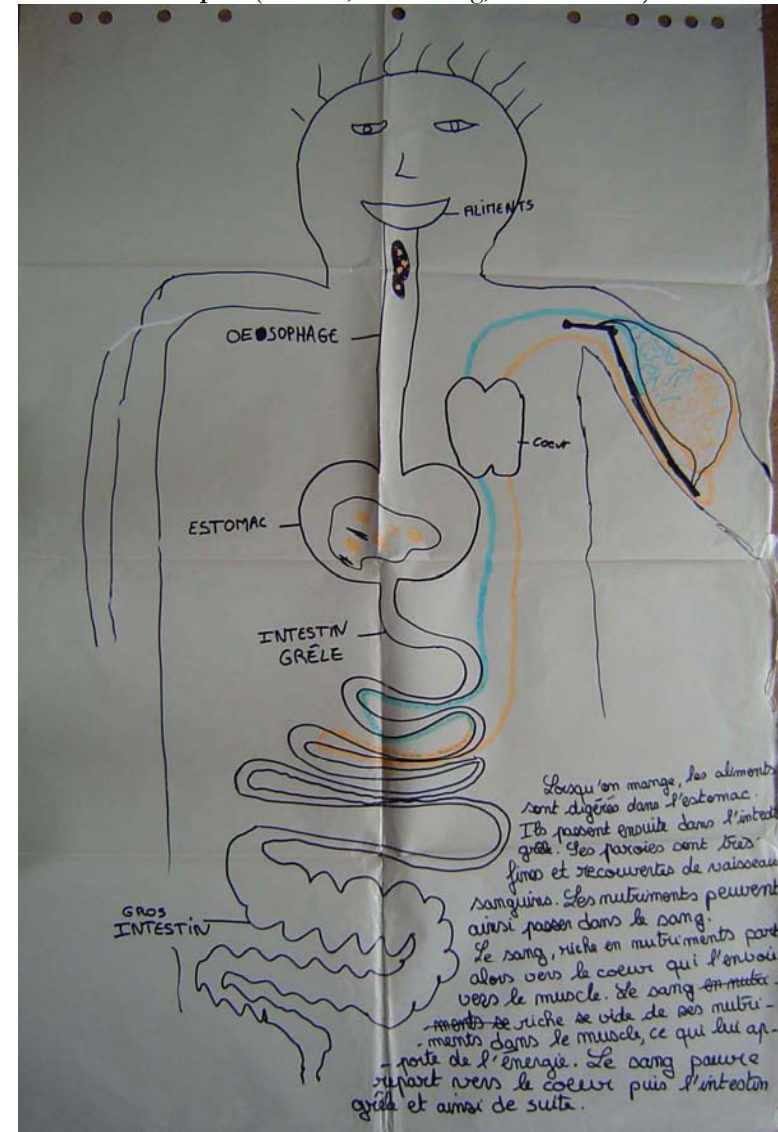 ALIMENTS
OEOSOPHAGE
COEUR
ESTOMAC
INTESTIN
GRÊLE
GROS
INTESTIN
Lorsqu'on mange, les aliments
sont digérés dans l'estomac.
Ils passent ensuite dans l'intestin
grêle. Ses paroies sont très
fines et recouvertes de vaisseau
sanguins. Les nutriments peuvent
ainsi passer dans le sang.
Le sang, riche en nutriments part
alors vers le coeur qui l'envoie
vers le muscle. Le sang en nutri-
-ments se riche se vide de ses nutri-
-ments dans le muscle, ce qui lui ap-
-porte de l'énergie. Le sang pauvre
repart vers le coeur puis l'intestin
grêle et ainsi de suite.